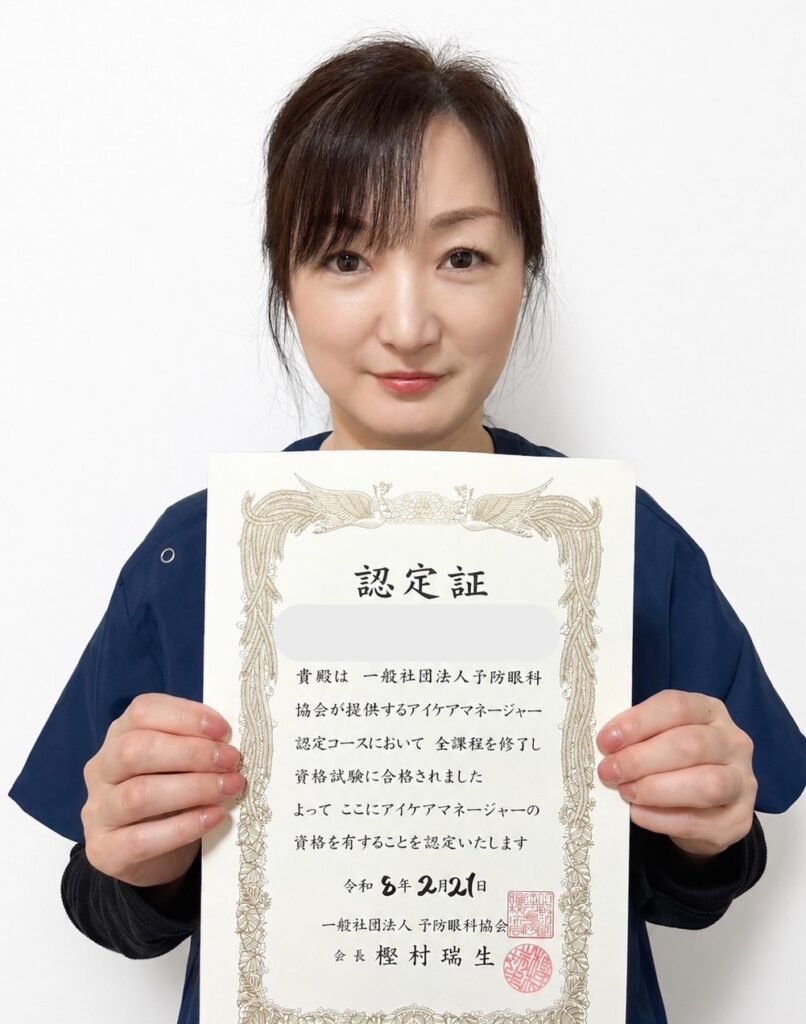 認定証
貴殿は 一般社団法人予防眼科
協会が提供するアイケアマネージャー
認定コースにおいて 全課程を修了し
資格試験に合格されました
よって ここにアイケアマネージャーの
資格を有することを認定いたします
令和8年2月21日
一般社団法人 予防眼科協会
会長 樫村瑞生